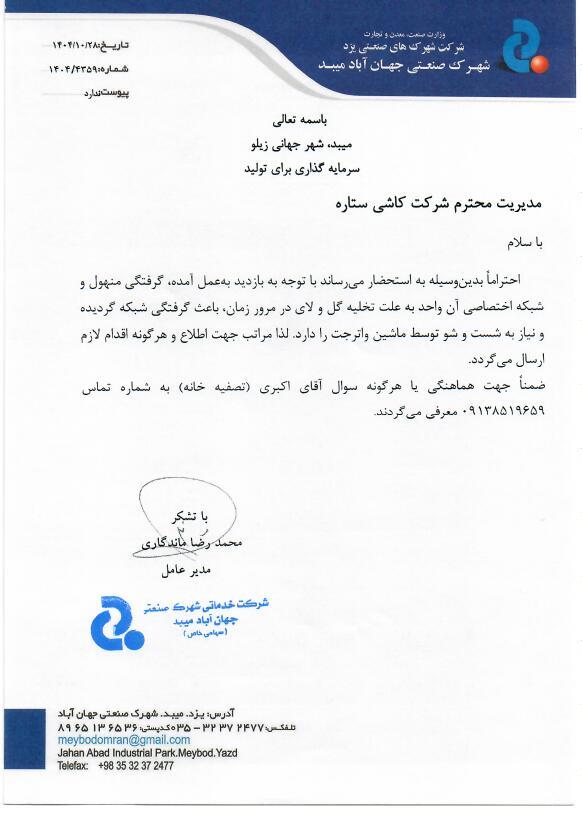 وزارت صنعت، معدن و تجارت
شرکت شهرک های صنعتی یزد
شهرک صنعتی جهان آباد میبد
تاریخ: ۱۴۰۴/۱۰/۲۸
شماره: ۱۴۰۴/۴۳۵۹
پیوست: ندارد
باسمه تعالی
میبد، شهر جهانی زیلو
سرمایه گذاری برای تولید
مدیریت محترم شرکت کاشی ستاره
با سلام
احتراماً بدین‌وسیله به استحضار می‌رساند با توجه به بازدید به‌عمل آمده، گرفتگی منهول و
شبکه اختصاصی آن واحد به علت تخلیه گل و لای در مرور زمان، باعث گرفتگی شبکه گردیده
و نیاز به شست و شو توسط ماشین واترجت را دارد. لذا مراتب جهت اطلاع و هرگونه اقدام لازم
ارسال می‌گردد.
ضمناً جهت هماهنگی یا هرگونه سوال آقای اکبری (تصفیه خانه) به شماره تماس
۰۹۱۳۸۵۱۹۶۵۹ معرفی می‌گردند.
با تشکر
محمد رضا ماندگاری
مدیر عامل
شرکت خدماتی شهرک صنعتی
جهان آباد میبد
(سهامی خاص)
آدرس: یزد. میبد. شهرک صنعتی جهان آباد
تلفکس: ۰۳۵ – ۳۲ ۳۷ ۲۴۷۷ کدپستی: ۸۹ ۶۵ ۱۳ ۶۵ ۳۶
meybodomran@gmail.com
Jahan Abad Industrial Park.Meybod.Yazd
Telefax: +98 35 32 37 2477